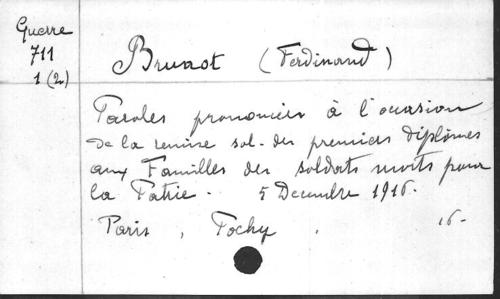 Guerre
711
1 (2)
Brunot (Ferdinand)
Paroles prononcées à l'occasion
de la remise sol. des premiers diplômes
aux Familles des soldats morts pour
la Patrie. 5 Decembre 1916.
Paris, Tochy. 16-